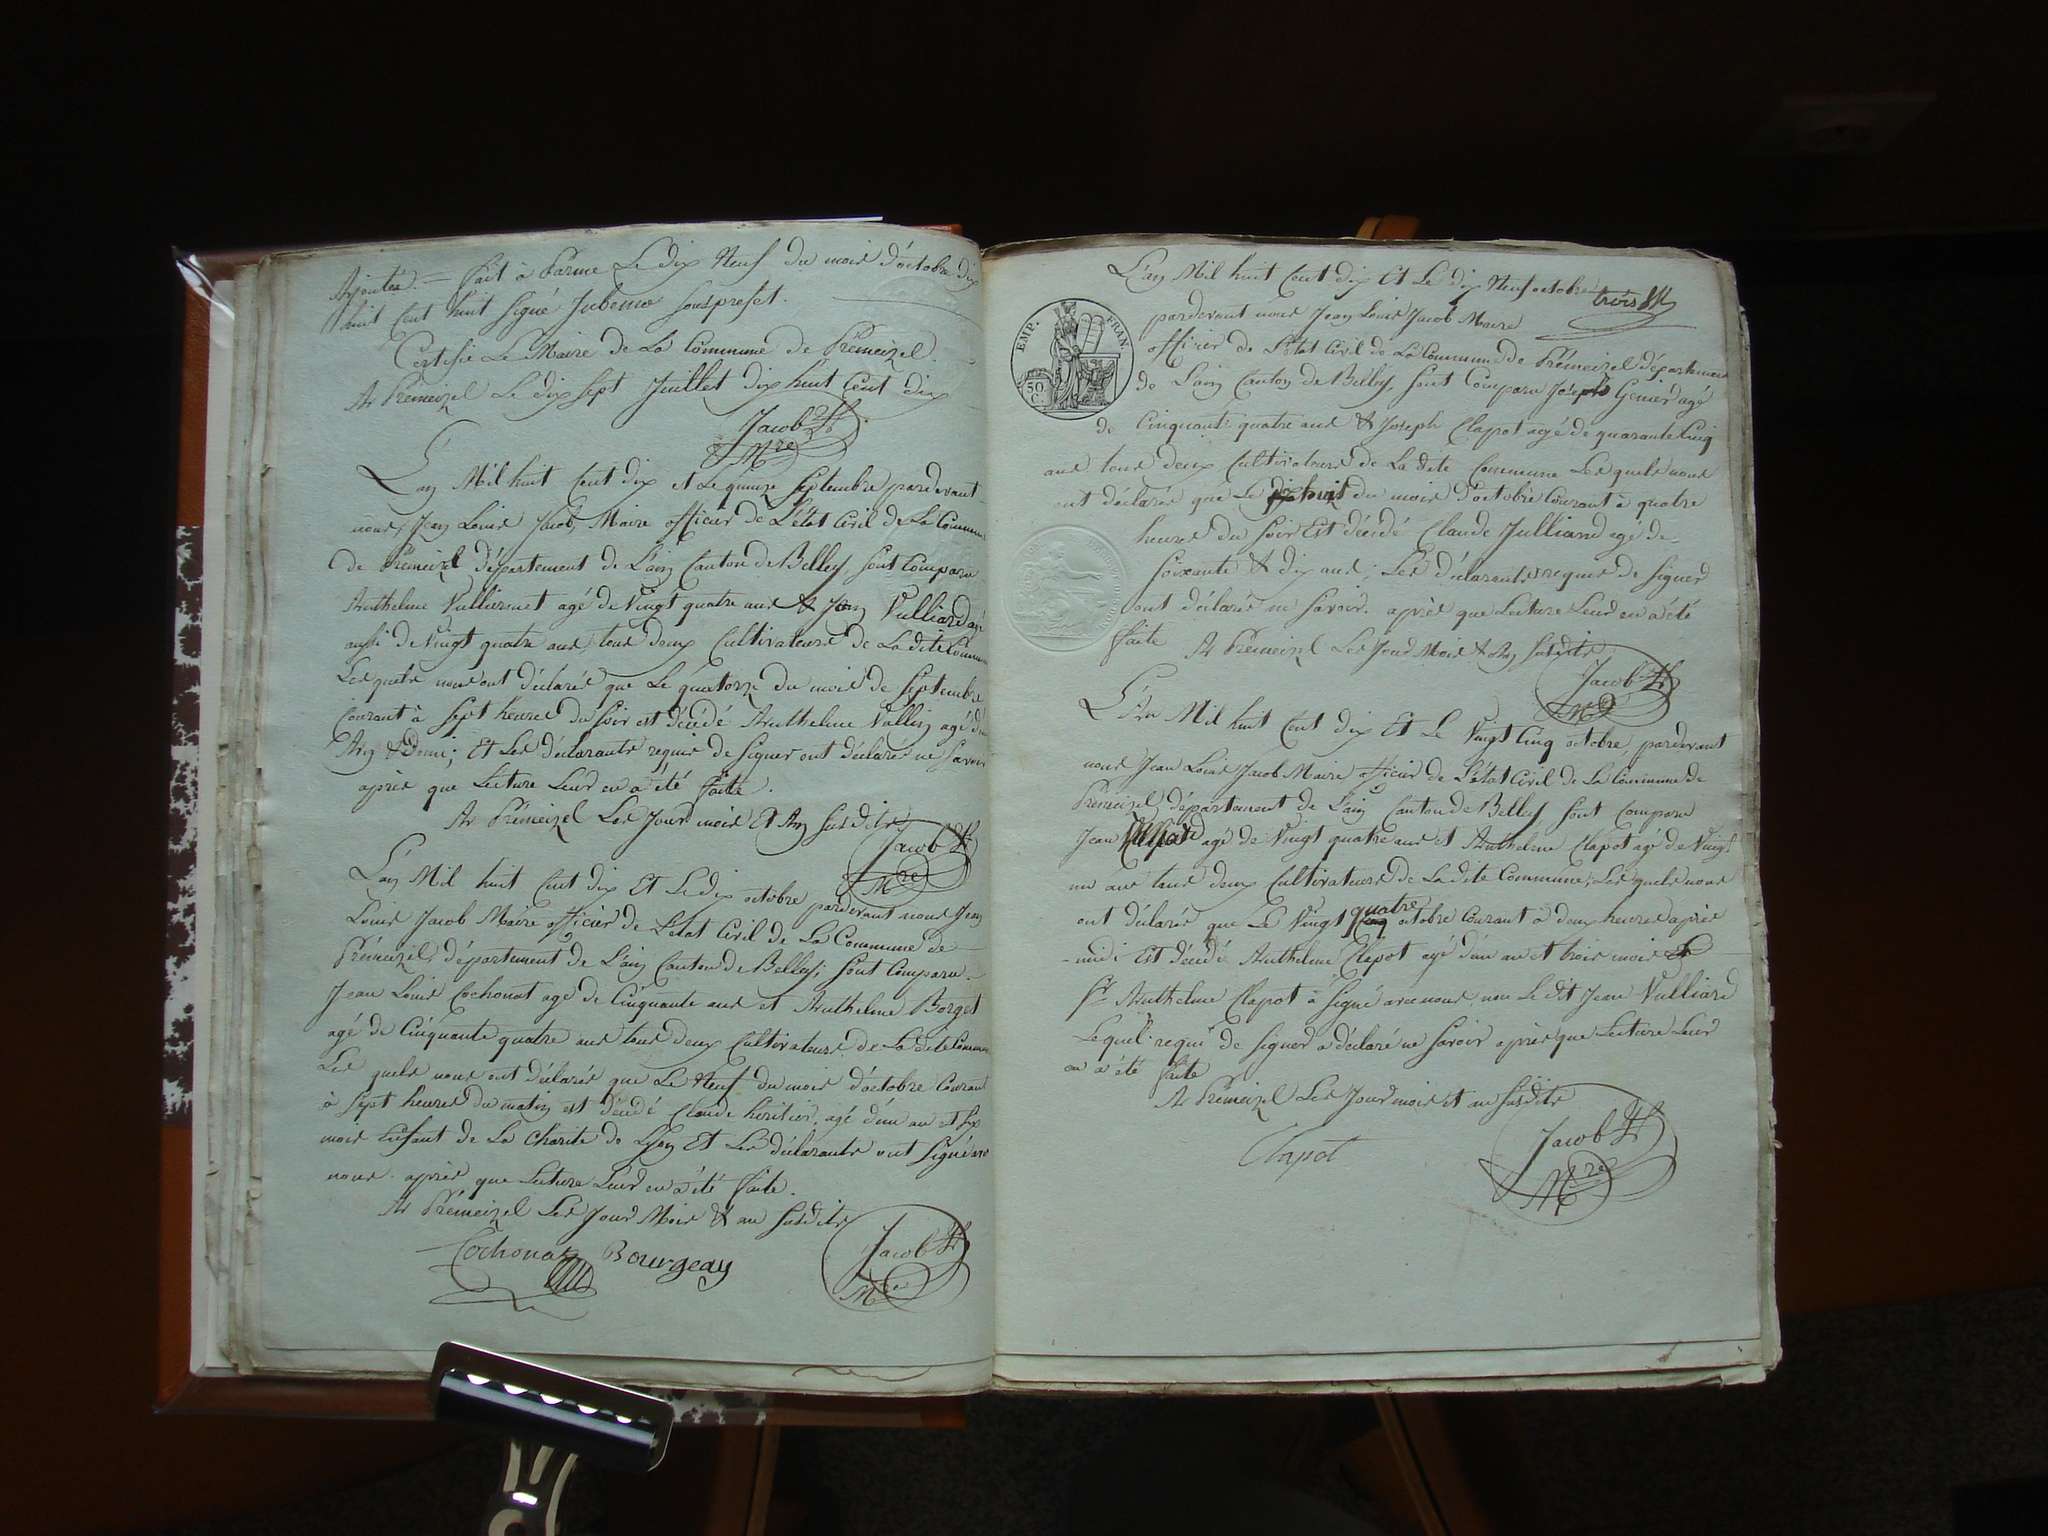 Ajoutés = fait à Parme Le dix Neuf du mois d'octobre dix
huit Cent huit signé Jubemo Sousprefet.
Certifié Le Maire de La Commune de Prémeizel.
At Prémeizel Le dix sept Juillet dix huit Cent dix
Jacob
Mre
L'an Mil huit Cent dix et Le quinze Septembre pardevant
nous, Jean Louis Jacob, Maire officier de L'état Civil de La Commune
de Prémeizel département de L'ain Canton de Belley, sont Comparu
Anthelme Vulliermet agé de Vingt quatre ans & Jean Vulliard agé
aussi de Vingt quatre ans, tous deux Cultivateurs de La dite Commune
Les quels nous ont déclarés que Le quatorze du mois de Septembre
Courant à sept heures du soir est décédé Anthelme Vallin agé d'un
An & Demi; Et Les déclarants requis de signer ont déclarés ne savoir
après que Lecture Leur en a été faite.
At Prémeizel Les Jour mois Et An susdits
Jacob
Mre
L'an Mil huit Cent dix Et Le dix octobre pardevant nous Jean
Louis Jacob Maire officier de L'état Civil de La Commune de
Prémeizel, département de L'ain Canton de Belley; sont Comparu
Jean Louis Cochonat agé de Cinquante ans et Anthelme Borget
agé de Cinquante quatre ans tous deux Cultivateurs de La dite Commune
Les quels nous ont déclarés que Le Neuf du mois d'octobre Courant
à sept heures du matin est décédé Claude heritier, agé d'un an et six
mois Enfant de La Charité de Lyon Et Les déclarants ont signé avec
nous. après que Lecture Leur en a été faite.
At Prémeizel Les Jour Mois & an susdits
Cochonat Bourgeay
Jacob
Mre
L'an Mil huit Cent dix Et Le dix Neuf octobre
trois
pardevant nous Jean Louis Jacob Maire
EMP. FRAN.
50 C.
officier de L'état Civil de La Commune de Prémeizel département
de L'ain Canton de Belley, sont Comparu Joseph Genier agé
de Cinquante quatre ans & Joseph Clapot agé de quarante Cinq
ans tous deux Cultivateurs de La dite Commune Les quels nous
ont déclarés que Le dix huit du mois d'octobre Courant à quatre
heures du soir Est décédé Claude Julliand agé de
soixante & dix ans; Les déclarants requis de signer
ont déclarés ne savoir. après que Lecture Leur en a été
faite At Prémeizel Les Jour Mois & An susdits
Jacob
L'An Mil huit Cent dix Et Le Vingt Cinq octobre, pardevant
nous Jean Louis Jacob Maire officier de L'état Civil de La Commune de
Prémeizel, département de L'ain Canton de Belley sont Comparu
Jean agé de Vingt quatre ans et Anthelme Clapot agé de Vingt
un ans tous deux Cultivateurs de La dite Commune, Les quels nous
ont déclarés que Le Vingt quatre octobre Courant à deux heures après
midi Est décédé Anthelme Clapot agé d'un an et trois mois &
Sr Anthelme Clapot à signé avec nous, non Le dit Jean Vulliard
Lequel requi de signer a déclaré ne savoir après que Lecture Leur
en a été faite
At Prémeizel Les Jour mois et an susdits
Clapot
Jacob
Mre